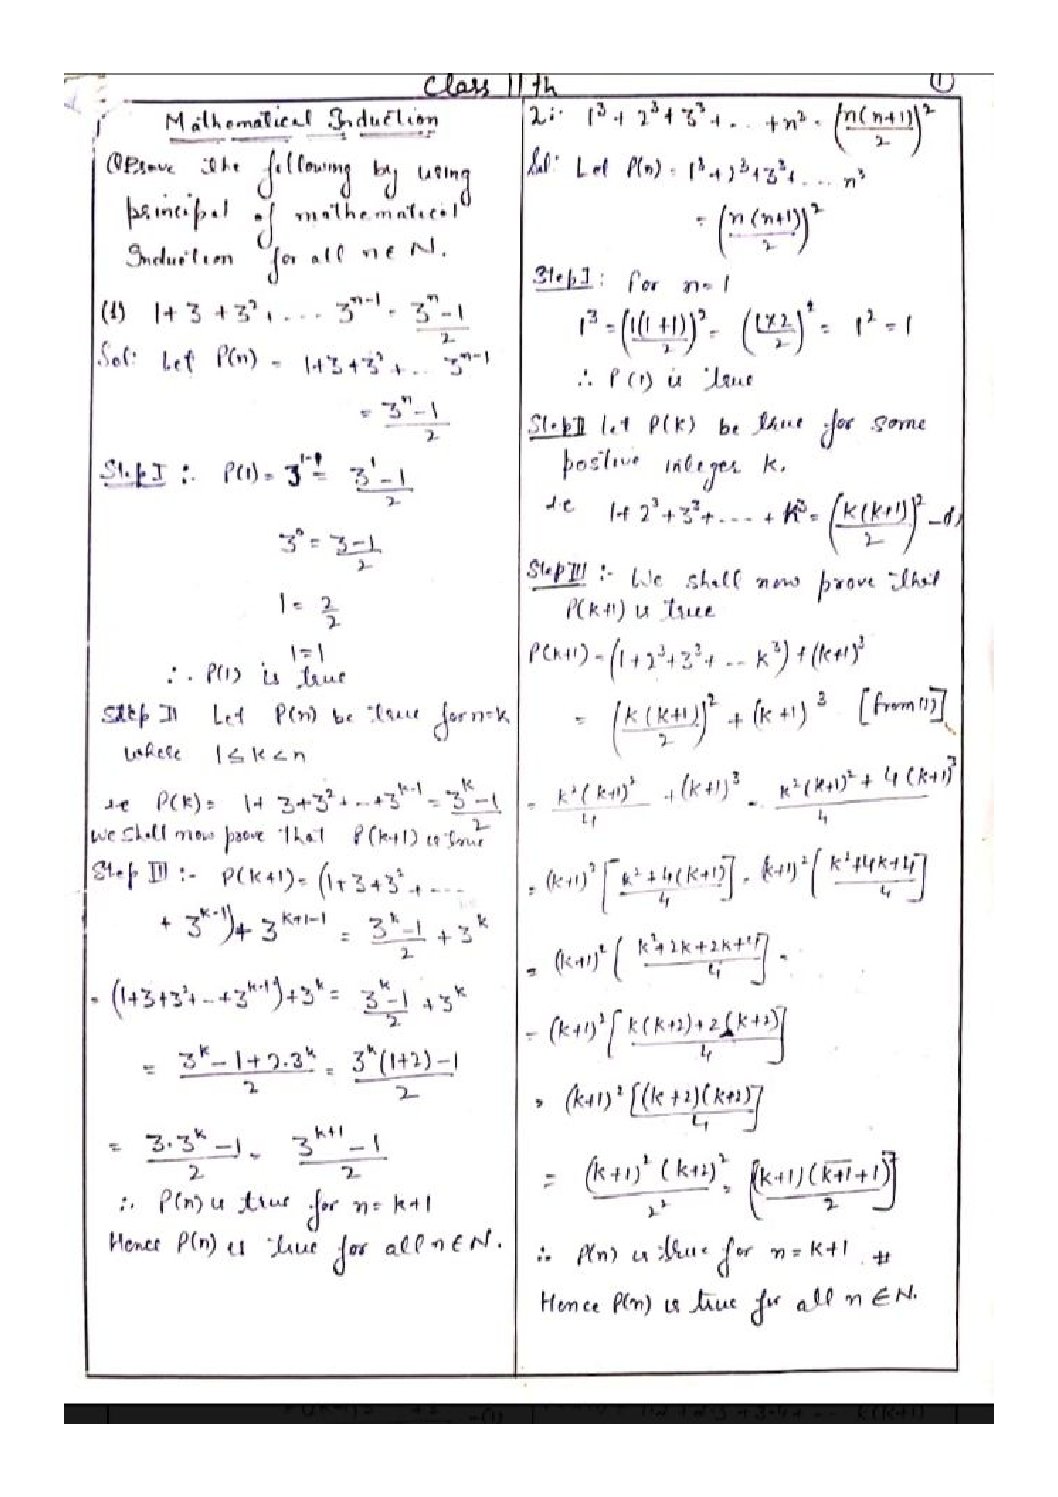 Class 11 th
1
Mathematical Induction
Q Prove the following by using
principal of mathematical
Induction for all n ∈ N.
(1) 1+3+3²+.... 3ⁿ⁻¹ = (3ⁿ-1)/2
Sol: Let P(n) = 1+3+3²+... 3ⁿ⁻¹
= (3ⁿ-1)/2
Step I :- P(1) = 3¹⁻¹ = (3¹-1)/2
3⁰ = (3-1)/2
1 = 2/2
1 = 1
∴ P(1) is true
Step II Let P(n) be true for n=k
where 1 ≤ k < n
i.e P(k) = 1+3+3²+...+3ᵏ⁻¹ = (3ᵏ-1)/2
We shall now prove that P(k+1) is true
Step III :- P(k+1) = (1+3+3²+....
+ 3ᵏ⁻¹) + 3ᵏ⁺¹⁻¹ = (3ᵏ-1)/2 + 3ᵏ
= (1+3+3²+...+3ᵏ⁻¹)+3ᵏ = (3ᵏ-1)/2 + 3ᵏ
= (3ᵏ-1+2.3ᵏ)/2 = (3ᵏ(1+2)-1)/2
= (3.3ᵏ-1)/2 = (3ᵏ⁺¹-1)/2
∴ P(n) is true for n = k+1
Hence P(n) is true for all n ∈ N.
2:- 1³+2³+3³+...+n³ = (n(n+1)/2)²
Sol: Let P(n) = 1³+2³+3³+.... n³
= (n(n+1)/2)²
Step I : For n=1
1³ = (1(1+1)/2)² = (1×2/2)² = 1² = 1
∴ P(1) is true
Step II Let P(k) be true for some
postive integer k.
i.e 1+2³+3³+....+k³ = (k(k+1)/2)² -(1)
Step III :- We shall now prove that
P(k+1) is true
P(k+1) = (1+2³+3³+... k³)+(k+1)³
= (k(k+1)/2)² + (k+1)³ [from(1)]
= k²(k+1)²/4 + (k+1)³ = (k²(k+1)²+4(k+1)³)/4
= (k+1)² [(k²+4(k+1))/4] = (k+1)² [(k²+4k+4)/4]
= (k+1)² [(k²+2k+2k+4)/4] =
= (k+1)² [(k(k+2)+2(k+2))/4]
= (k+1)² [(k+2)(k+2)/4]
= (k+1)²(k+2)²/2² = [(k+1)(k+1+1)/2]²
∴ P(n) is true for n = k+1 #
Hence P(n) is true for all n ∈ N.